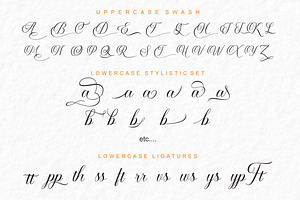 UPPERCASE SWASH
A B C D E F G H I J K L
M N O P Q R S T U V W X Y Z
LOWERCASE STYLISTIC SET
a a a a a
b b b b b
etc....
LOWERCASE LIGATURES
tt pp th ss ft rr vs ws ys yp Ft